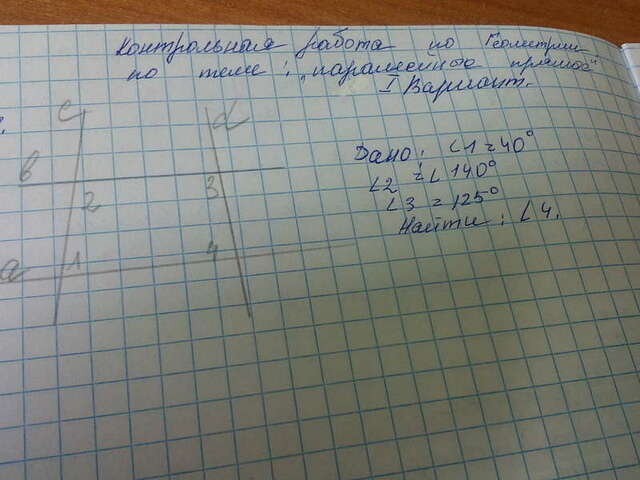 Контрольная работа по Геометрии
по теме: „параллельные прямые"
I Вариант.
c
d
b
2
3
a
1
4
Дано: ∠1 = 40°
∠2 = ∠ 140°
∠3 = 125°
Найти: ∠4.